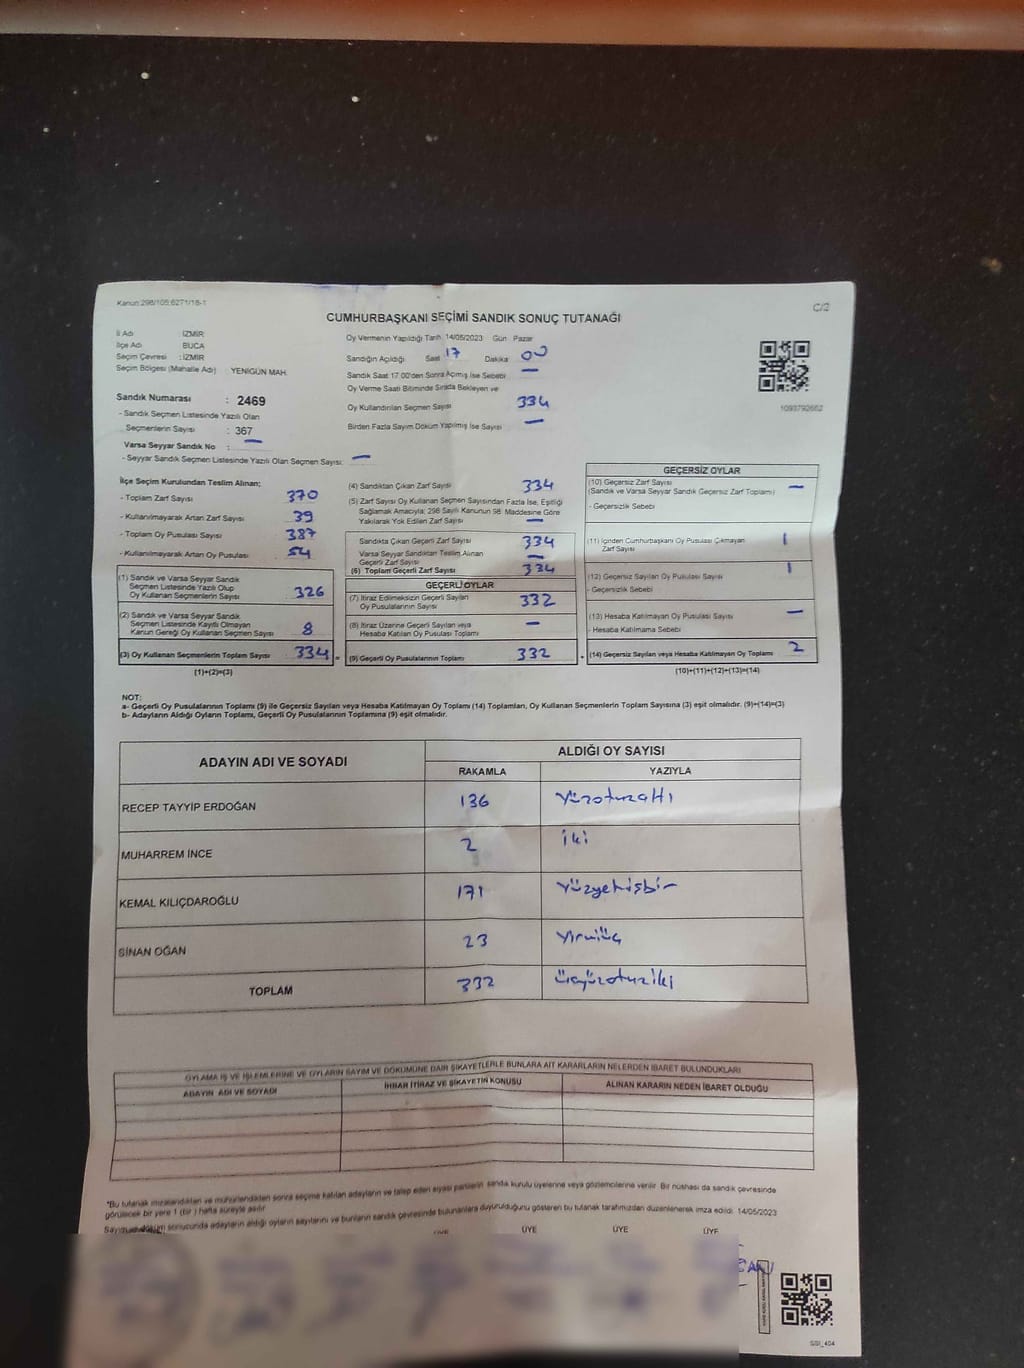 Kanun:298/105;6271/18-1
C/2
CUMHURBAŞKANI SEÇİMİ SANDIK SONUÇ TUTANAĞI
İl Adı İZMİR
İlçe Adı BUCA
Seçim Çevresi : İZMİR
Seçim Bölgesi (Mahalle Adı) : YENİGÜN MAH.
Sandık Numarası : 2469
- Sandık Seçmen Listesinde Yazılı Olan
Seçmenlerin Sayısı : 367
Varsa Seyyar Sandık No : —
- Seyyar Sandık Seçmen Listesinde Yazılı Olan Seçmen Sayısı: —
Oy Vermenin Yapıldığı Tarih 14/05/2023 Gün Pazar
Sandığın Açıldığı Saat 17 Dakika 00
Sandık Saat 17.00'den Sonra Açılmış İse Sebebi —
Oy Verme Saati Bitiminde Sırada Bekleyen ve
Oy Kullandırılan Seçmen Sayısı 334
Birden Fazla Sayım Döküm Yapılmış İse Sayısı —
1093792662
İlçe Seçim Kurulundan Teslim Alınan;
- Toplam Zarf Sayısı 370
- Kullanılmayarak Artan Zarf Sayısı 39
- Toplam Oy Pusulası Sayısı 387
- Kullanılmayarak Artan Oy Pusulası 54
(1) Sandık ve Varsa Seyyar Sandık
Seçmen Listesinde Yazılı Olup
Oy Kullanan Seçmenlerin Sayısı 326
(2) Sandık ve Varsa Seyyar Sandık
Seçmen Listesinde Kayıtlı Olmayan
Kanun Gereği Oy Kullanan Seçmen Sayısı 8
(3) Oy Kullanan Seçmenlerin Toplam Sayısı 334 =
(1)+(2)=(3)
(4) Sandıktan Çıkan Zarf Sayısı 334
(5) Zarf Sayısı Oy Kullanan Seçmen Sayısından Fazla İse, Eşitliği
Sağlamak Amacıyla; 298 Sayılı Kanunun 98. Maddesine Göre
Yakılarak Yok Edilen Zarf Sayısı —
Sandıkta Çıkan Geçerli Zarf Sayısı 334
Varsa Seyyar Sandıktan Teslim Alınan
Geçerli Zarf Sayısı —
(6) Toplam Geçerli Zarf Sayısı 334
GEÇERLİ OYLAR
(7) İtiraz Edilmeksizin Geçerli Sayılan
Oy Pusulalarının Sayısı 332
(8) İtiraz Üzerine Geçerli Sayılan veya
Hesaba Katılan Oy Pusulası Toplamı —
(9) Geçerli Oy Pusulalarının Toplamı 332 +
GEÇERSİZ OYLAR
(10) Geçersiz Zarf Sayısı
(Sandık ve Varsa Seyyar Sandık Geçersiz Zarf Toplamı) —
- Geçersizlik Sebebi
(11) İçinden Cumhurbaşkanı Oy Pusulası Çıkmayan
Zarf Sayısı 1
(12) Geçersiz Sayılan Oy Pusulası Sayısı 1
- Geçersizlik Sebebi
(13) Hesaba Katılmayan Oy Pusulası Sayısı —
- Hesaba Katılmama Sebebi
(14) Geçersiz Sayılan veya Hesaba Katılmayan Oy Toplamı 2
(10)+(11)+(12)+(13)=(14)
NOT:
a- Geçerli Oy Pusulalarının Toplamı (9) ile Geçersiz Sayılan veya Hesaba Katılmayan Oy Toplamı (14) Toplamları, Oy Kullanan Seçmenlerin Toplam Sayısına (3) eşit olmalıdır. (9)+(14)=(3)
b- Adayların Aldığı Oyların Toplamı, Geçerli Oy Pusulalarının Toplamına (9) eşit olmalıdır.
ADAYIN ADI VE SOYADI
ALDIĞI OY SAYISI
RAKAMLA YAZIYLA
RECEP TAYYİP ERDOĞAN 136 yüzotuzaltı
MUHARREM İNCE 2 iki
KEMAL KILIÇDAROĞLU 171 yüzyetmişbir
SİNAN OĞAN 23 yirmiüç
TOPLAM 332 üçyüzotuziki
OYLAMA İŞ VE İŞLEMLERİNE VE OYLARIN SAYIM VE DÖKÜMÜNE DAİR ŞİKAYETLERLE BUNLARA AİT KARARLARIN NELERDEN İBARET BULUNDUKLARI
ADAYIN ADI VE SOYADI İHBAR İTİRAZ VE ŞİKAYETİN KONUSU ALINAN KARARIN NEDEN İBARET OLDUĞU
*Bu tutanak imzalandıktan ve mühürlendikten sonra seçime katılan adayların ve talep eden siyasi partilerin sandık kurulu üyelerine veya gözlemcilerine verilir. Bir nüshası da sandık çevresinde
görülecek bir yere 1 (bir) hafta süreyle asılır.
Sayım ve döküm sonucunda adayların aldığı oyların sayılarını ve bunların sandık çevresinde bulunanlara duyurulduğunu gösteren bu tutanak tarafımızdan düzenlenerek imza edildi. 14/05/2023
ÜYE ÜYE ÜYE ÜYE
SSI_404